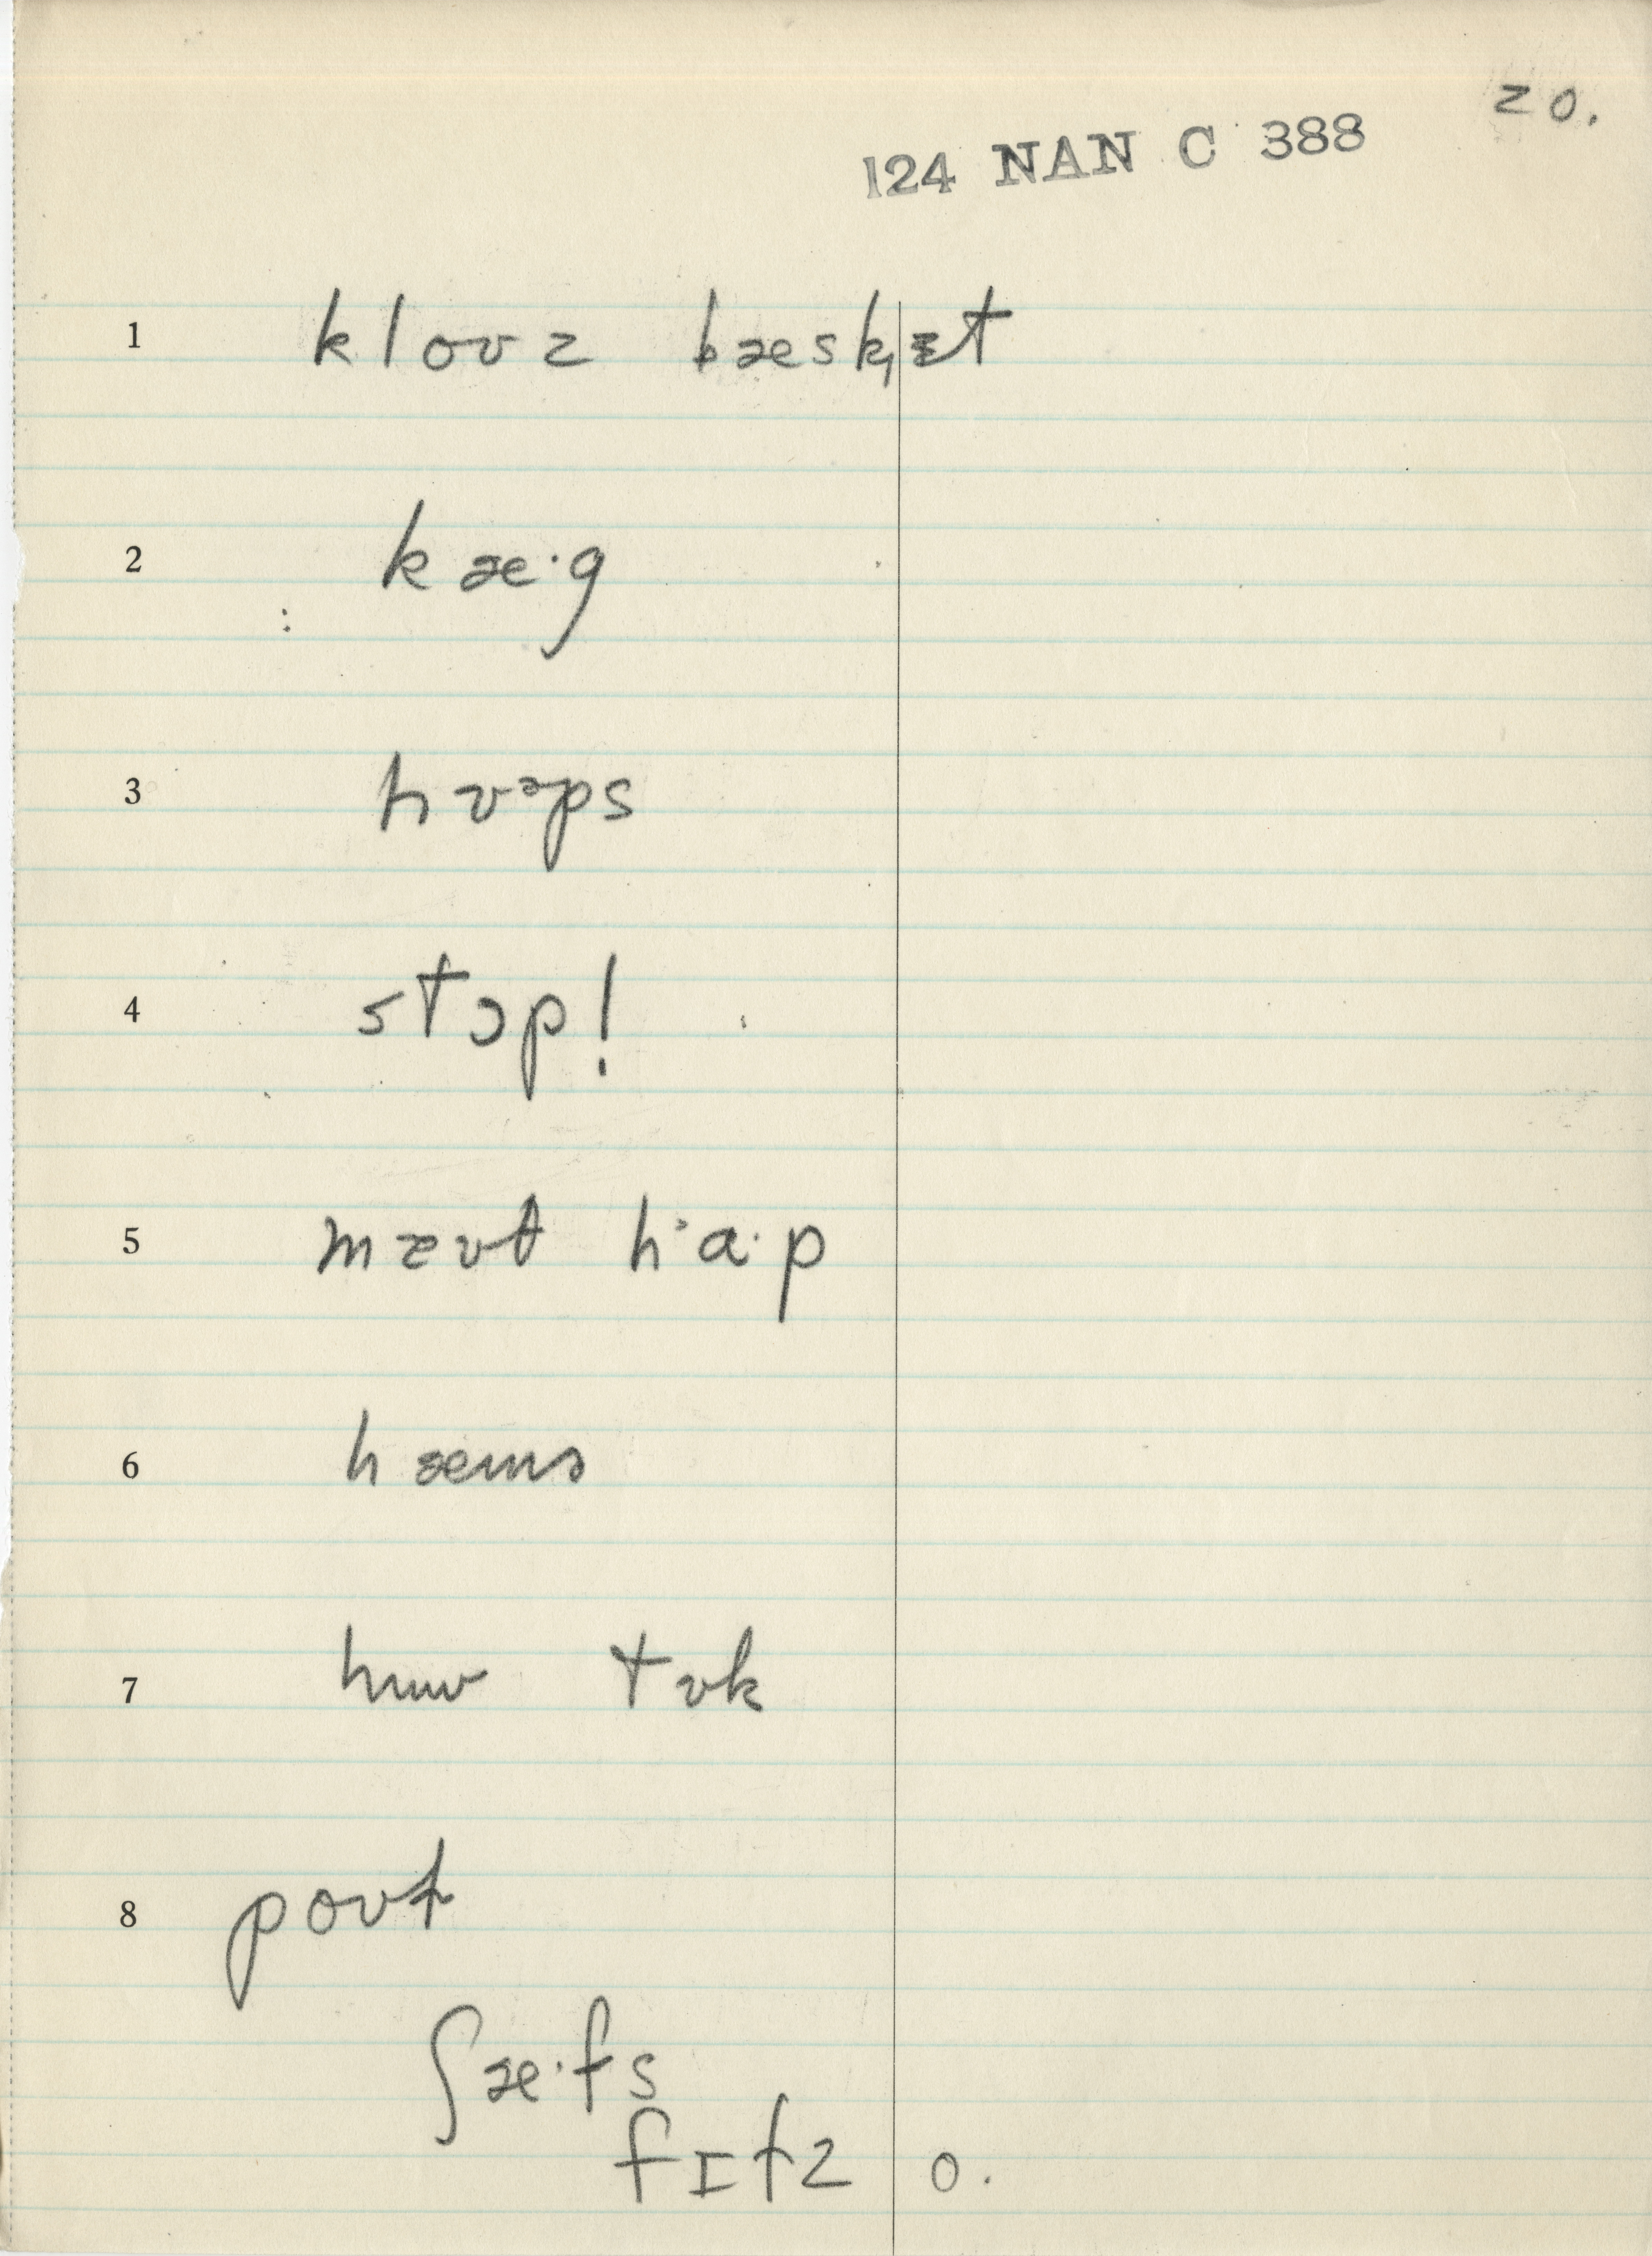 20.
124 NAN C 388
1 kloʊz bæsk̩ɪt
2 kæ·g
3 hʊᵊps
4 stɔp!
5 mɛʊt h·a·p
6 hæms
7 hɯʊ tʊk
8 poʊt
ʃæ·fs
fɪfz o.